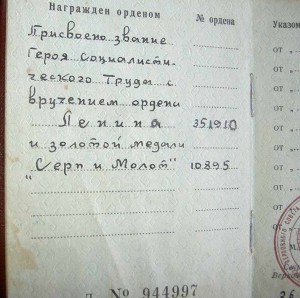 Награжден орденом № ордена Указом
Присвоено звание
Героя Социалисти- от
ческого Труда с от
вручением ордена от
Ленина 351910 от
и золотой медали от
"Серп и Молот" 10895 от
от
от
от
М.
№ 944997
26